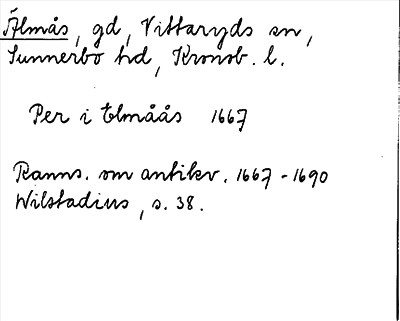 Älmås, gd, Vittaryds sn,
Sunnerbo hd, Kronob. l.
Per i Elmåås 1667
Ranns. om antikv. 1667-1690
Wilstadius, s. 38.